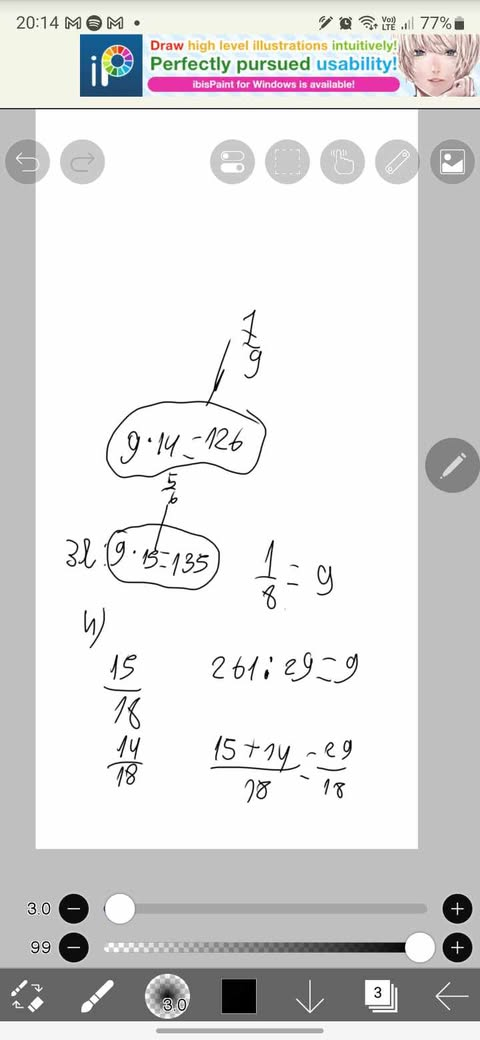 20:14 77%
Draw high level illustrations intuitively!
Perfectly pursued usability!
ibisPaint for Windows is available!
7
9
9·14=126
5
6
9·15=135
1
8 = 9
4)
15
18
261:29=9
14
18
15+14 = 29
18 18
3.0
99
3.0
3